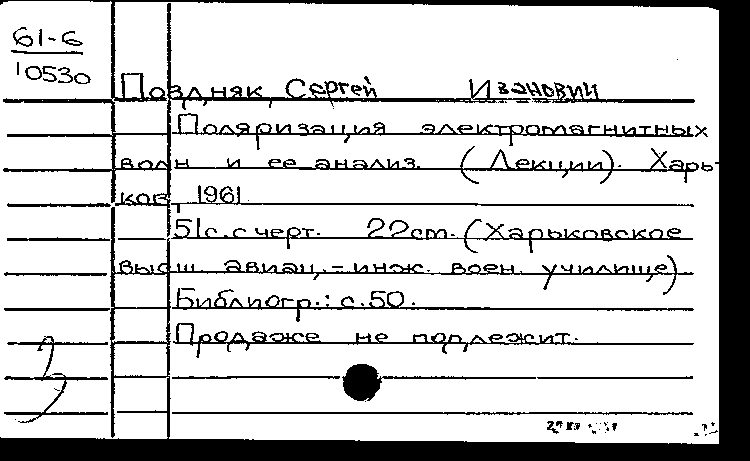 61-6
10530
Поздняк, Сергей Иванович
Поляризация электромагнитных
волн и ее анализ. (Лекции). Харь-
ков, 1961
51с. с черт. 22см. (Харьковское
высш. авиац.-инж. воен. училище)
Библиогр.: с.50.
Продаже не подлежит.